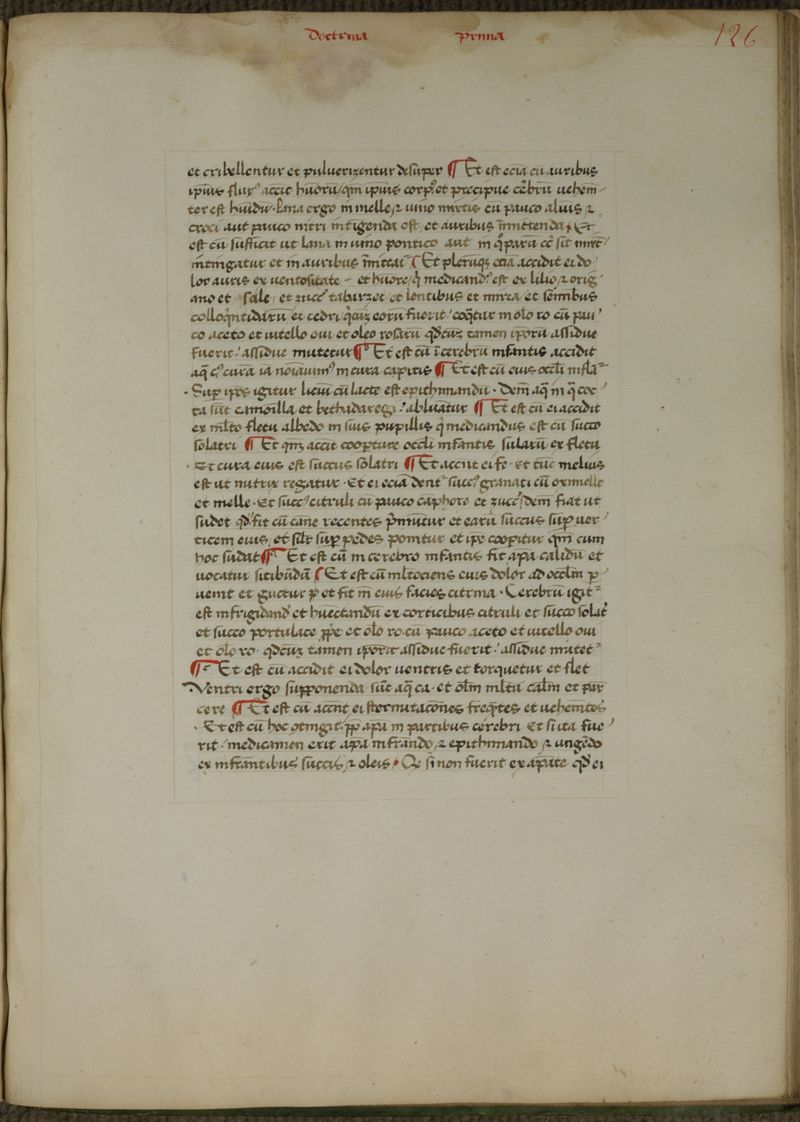 Doctrina prima
126
et cribellentur et pulverizentur desuper ¶ Et est ecia cu auribus
ipsius flux' accit huoru/qm ipsius corpꝰ et precipue cẽbru uehem
ter est huidu. Lana ergo in melle ⁊ uino mixtis cu pauco aluis ⁊
croci aut pauco nitri intigenda est et auribus ĩmittenda. Et
est cu sufficit ut lana in uino pontico aut in
intingatur et in auribus ĩmittat̄ ¶ Et pleruqꝫ ecia accidit ei do
lor auris ex uentositate et huore. qͥ medicand' est ex lilio ⁊ orig
ano et sale et zucc' tabarzet et lentibus et mirra et seminibus
colloqntidaru et cedri qcuꝫ eoru fuerit coqtur in olo ro cu pau
co aceto et uitello oui et oleo rosaru qdcuꝫ tamen iporu assidue
fuerit assidue mutetur ¶ Et est cu ĩ cerebru infantis accidit
aq̃ cꝰ cura ia noiauimꝰ in cura capitis ¶ Et est cu eius occli infla
Sup ipos igitur liciu cu lacte est epithimandu. Dem̃ aq̃ in q̃ coc
ta sut camoilla et bethidaregi abluatur ¶ Et est cu ei accidit
ex mlto fletu albedo in suis pupillis qͥ medicandus est cu succo
solatri ¶ Et qnꝫ accit coopture occli infantis sularu ex fletu
Et cura eius est succus solatri ¶ Et accnt ei fe. et tuc melius
est ut nutrix regatur. Et ei ecia dent' succꝰ granati cu oximelle
et melle. Et succꝰ citruli cu pauco caphore et zucc' dem̃ fiat ut
sudet qd fit cu cane recentes p̃mutur et earu succus sup uer
ticem eius et silr sup pedes ponitur et ipe coopitur qm cum
hoc sudat ¶ Et est cu in cerebro infantis fit apa calidu et
uocatur sitibundũ ¶ Et est cu mltociens euis dolor ad occlm p
uenit et guctur p et fit in eius facies citrina. Cerebru igit
est infrigidand' et huectandu ex corticibus citruli et succo solat'
et succo portulace ꝓpe et olo ro. cu pauco aceto et uitello oui
et olo ro qdcuꝫ tamen iporu assidue fuerit assidue mutet
¶ Et est cu accidit ei dolor uentris et torquetur et flet
Ventri ergo supponenda sut aq̃ ca. et olm mltu calm et par
cere ¶ Et est cu accnt ei sternutacones freqtes et uehemtes
Et est cu hoc otingit ꝓp apa in partibus cerebri Et si ita fue
rit medicamen erit apa infrando ⁊ epithimando ⁊ ungedo
ex infrantibus succis ⁊ oleis. Qe si non fuerit ex apate qd ei